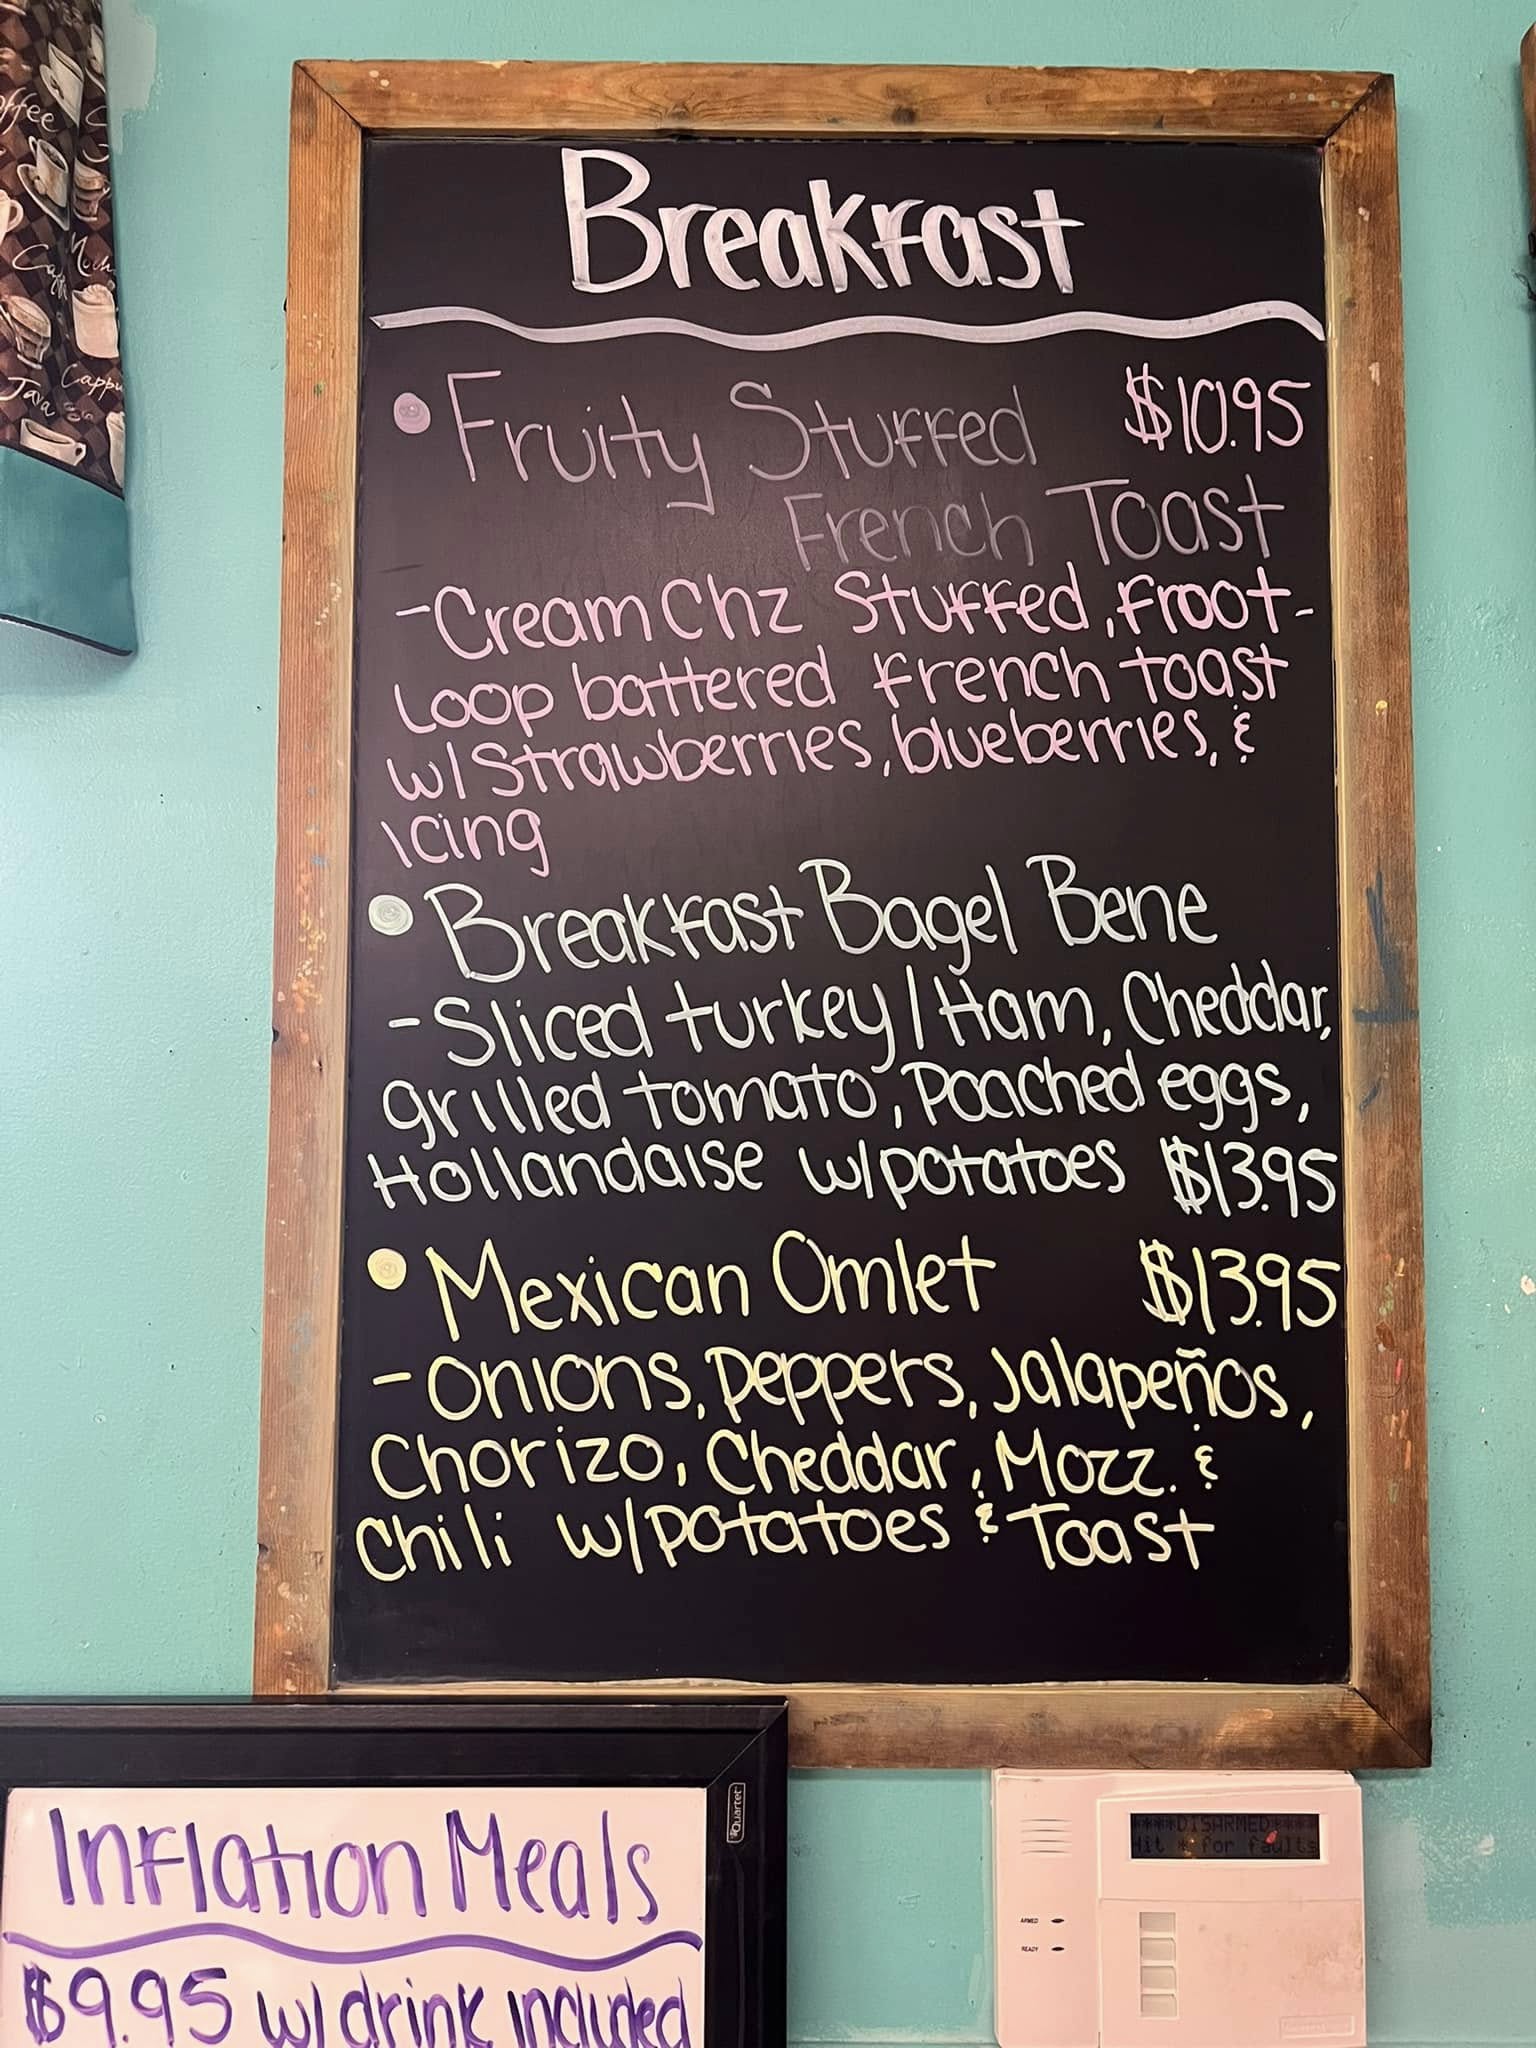 Breakfast
• Fruity Stuffed $10.95
French Toast
-Cream Chz Stuffed, Froot-
Loop battered French toast
w/ Strawberries, blueberries, &
icing
• Breakfast Bagel Bene
- Sliced turkey / Ham, Cheddar,
grilled tomato, Poached eggs,
Hollandaise w/ potatoes $13.95
• Mexican Omlet $13.95
- Onions, Peppers, Jalapeños,
Chorizo, Cheddar, Mozz. &
Chili w/ potatoes & Toast
Inflation Meals
$9.95 w/ drink included
Quartet
****DISARMED****
Hit * for faults
ARMED
READY
offee
Mocha
Java
Cappu